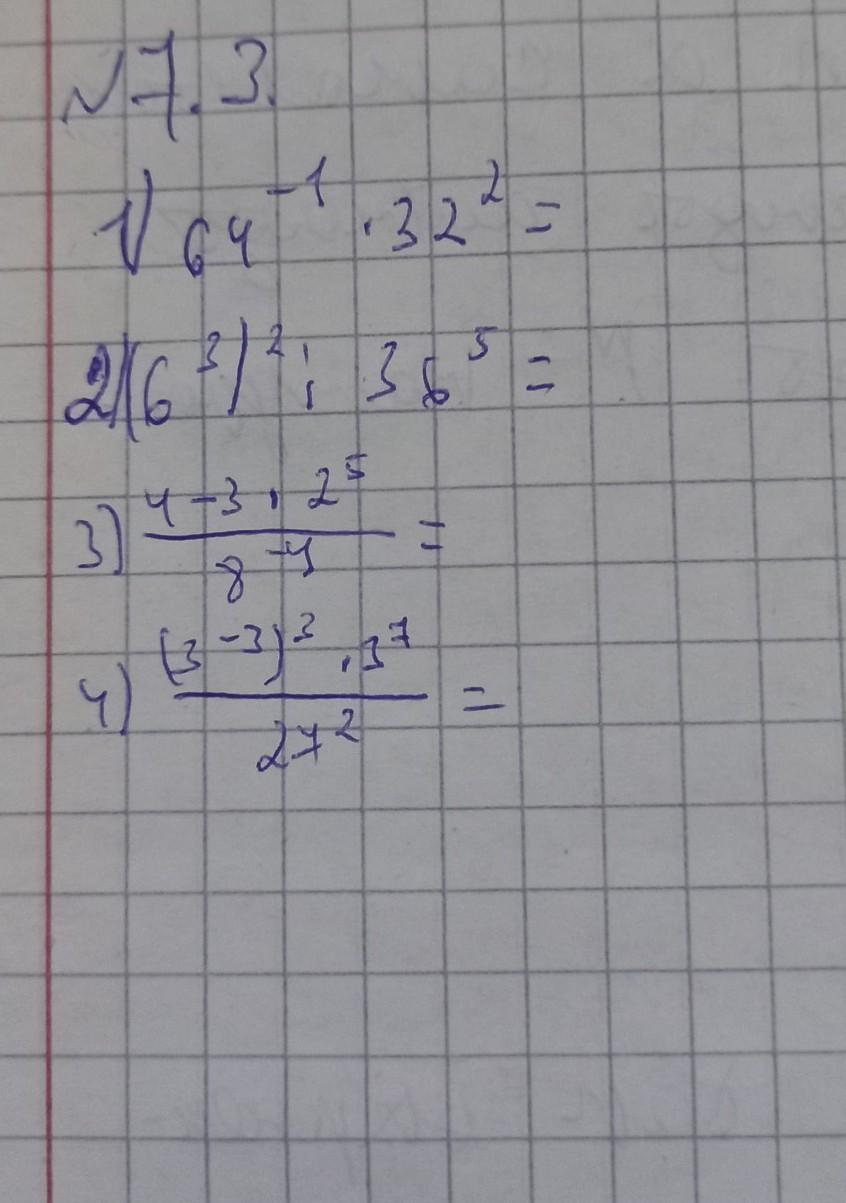 №7.3.
1) 64⁻¹ · 32² =
2) (6³)² : 36⁵ =
3) (4-3 · 2⁵)/(8⁻⁴) =
4) ((3⁻³)³ · 3⁷)/(27²) =